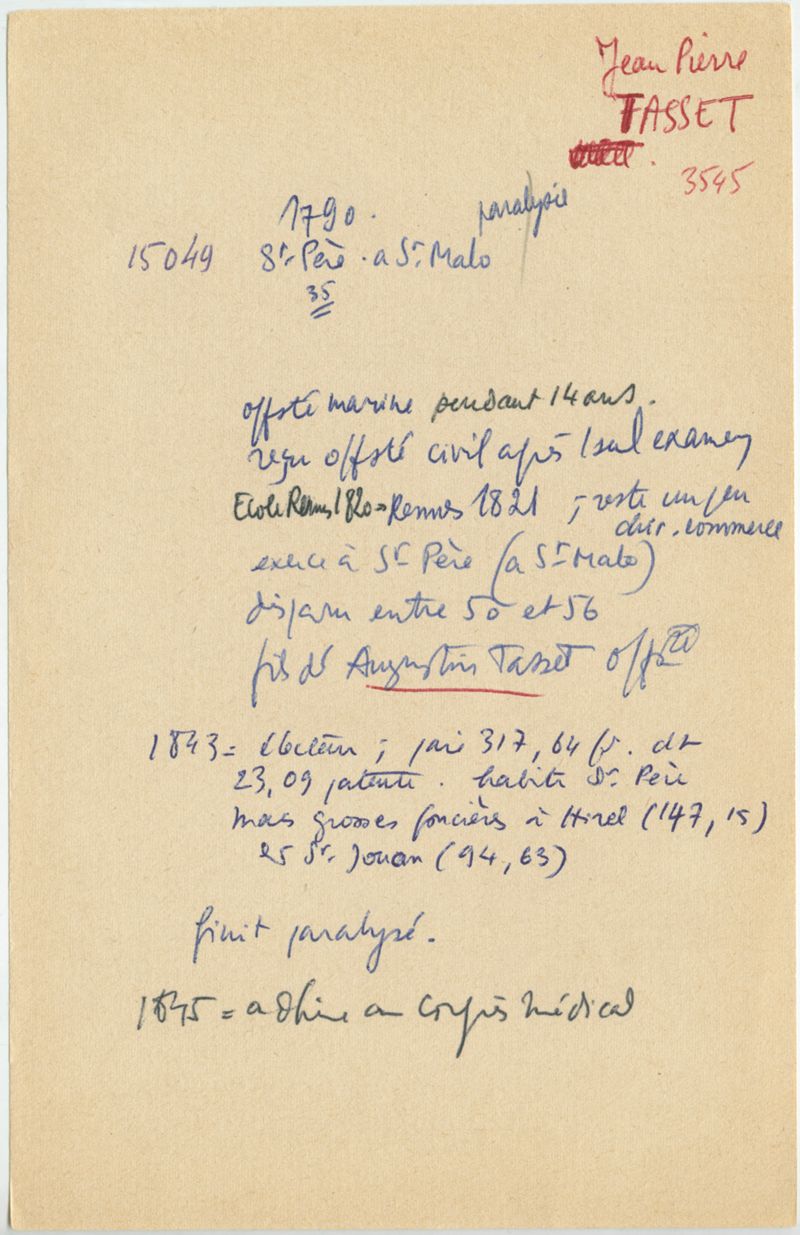 Jean Pierre
TASSET
3545
1790.
paralysie
15049 St. Père. a St. Malo
35
offsté marine pendant 14 ans.
reçu offsté civil après 1 seul examen
Ecole Rennes 1820 = Rennes 1821 ; reste un peu
chir. commerce
exerce à St Père (a St Malo)
disparu entre 50 et 56
fils d' Augustin Tasset offsté
1843 = électeur ; paie 317,64 fr. dt
23,09 patente. habite St. Père
mais grosses foncières à Hirel (147,15)
et St. Jouan (94,63)
finit paralysé.
1845 = adhère au Congrès Médical